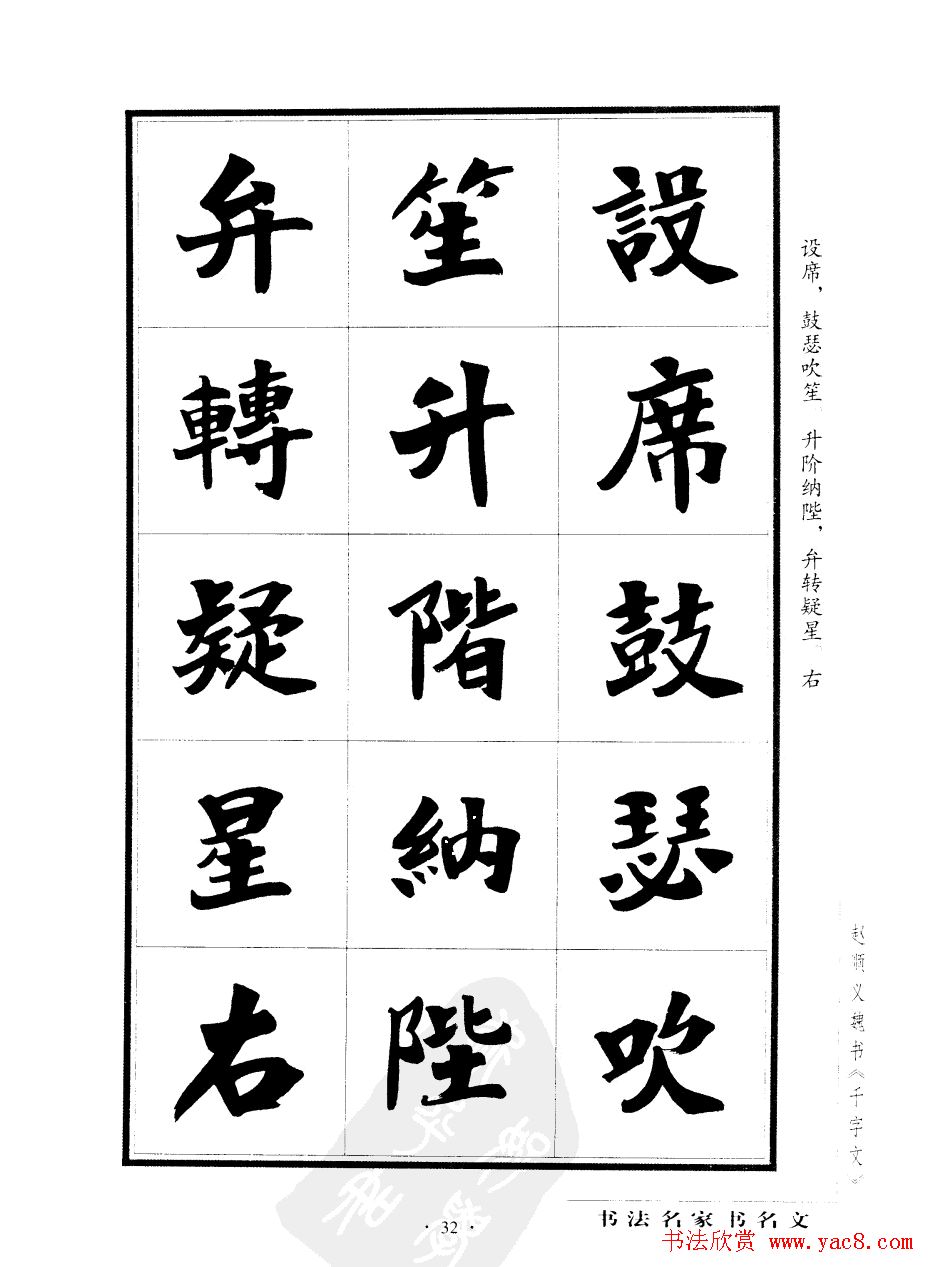 設席鼓瑟吹
笙升階納陛
弁轉疑星右
设席，鼓瑟吹笙 升阶纳陛，弁转疑星 右
赵顺义魏书《千字文》
书法名家书名文
· 32 ·
书法欣赏 www.yac8.com